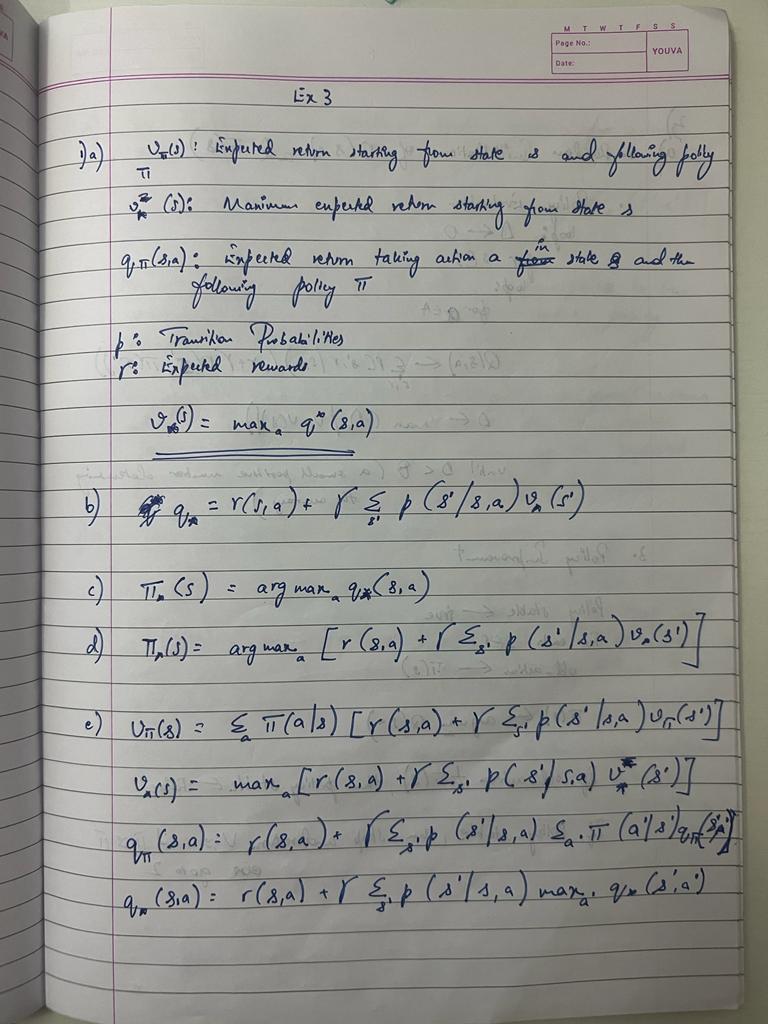 M T W T F S S
Page No.:
YOUVA
Date:
Ex 3
1)a) v_π(s): Expected return starting from state s and following policy
π
v_*(s): Maximum expected return starting from state s
q_π(s,a): Expected return taking action a in state s and the
following policy π
p: Transition Probabilities
r: Expected rewards
v_*(s) = max_a q*(s,a)
b) q_* = r(s,a) + γ Σ_s' p(s'/s,a) v_*(s')
c) π_*(s) = arg max_a q_*(s,a)
d) π_*(s) = arg max_a [r(s,a) + γ Σ_s' p(s'/s,a) v_*(s')]
e) v_π(s) = Σ_a π(a/s) [r(s,a) + γ Σ_s' p(s'/s,a) v_π(s')]
v_*(s) = max_a [r(s,a) + γ Σ_s' p(s'/s,a) v_*(s')]
q_π(s,a) = r(s,a) + γ Σ_s' p(s'/s,a) Σ_a' π(a'/s') q_π(s',a')
q_*(s,a) = r(s,a) + γ Σ_s' p(s'/s,a) max_a' q_*(s',a')